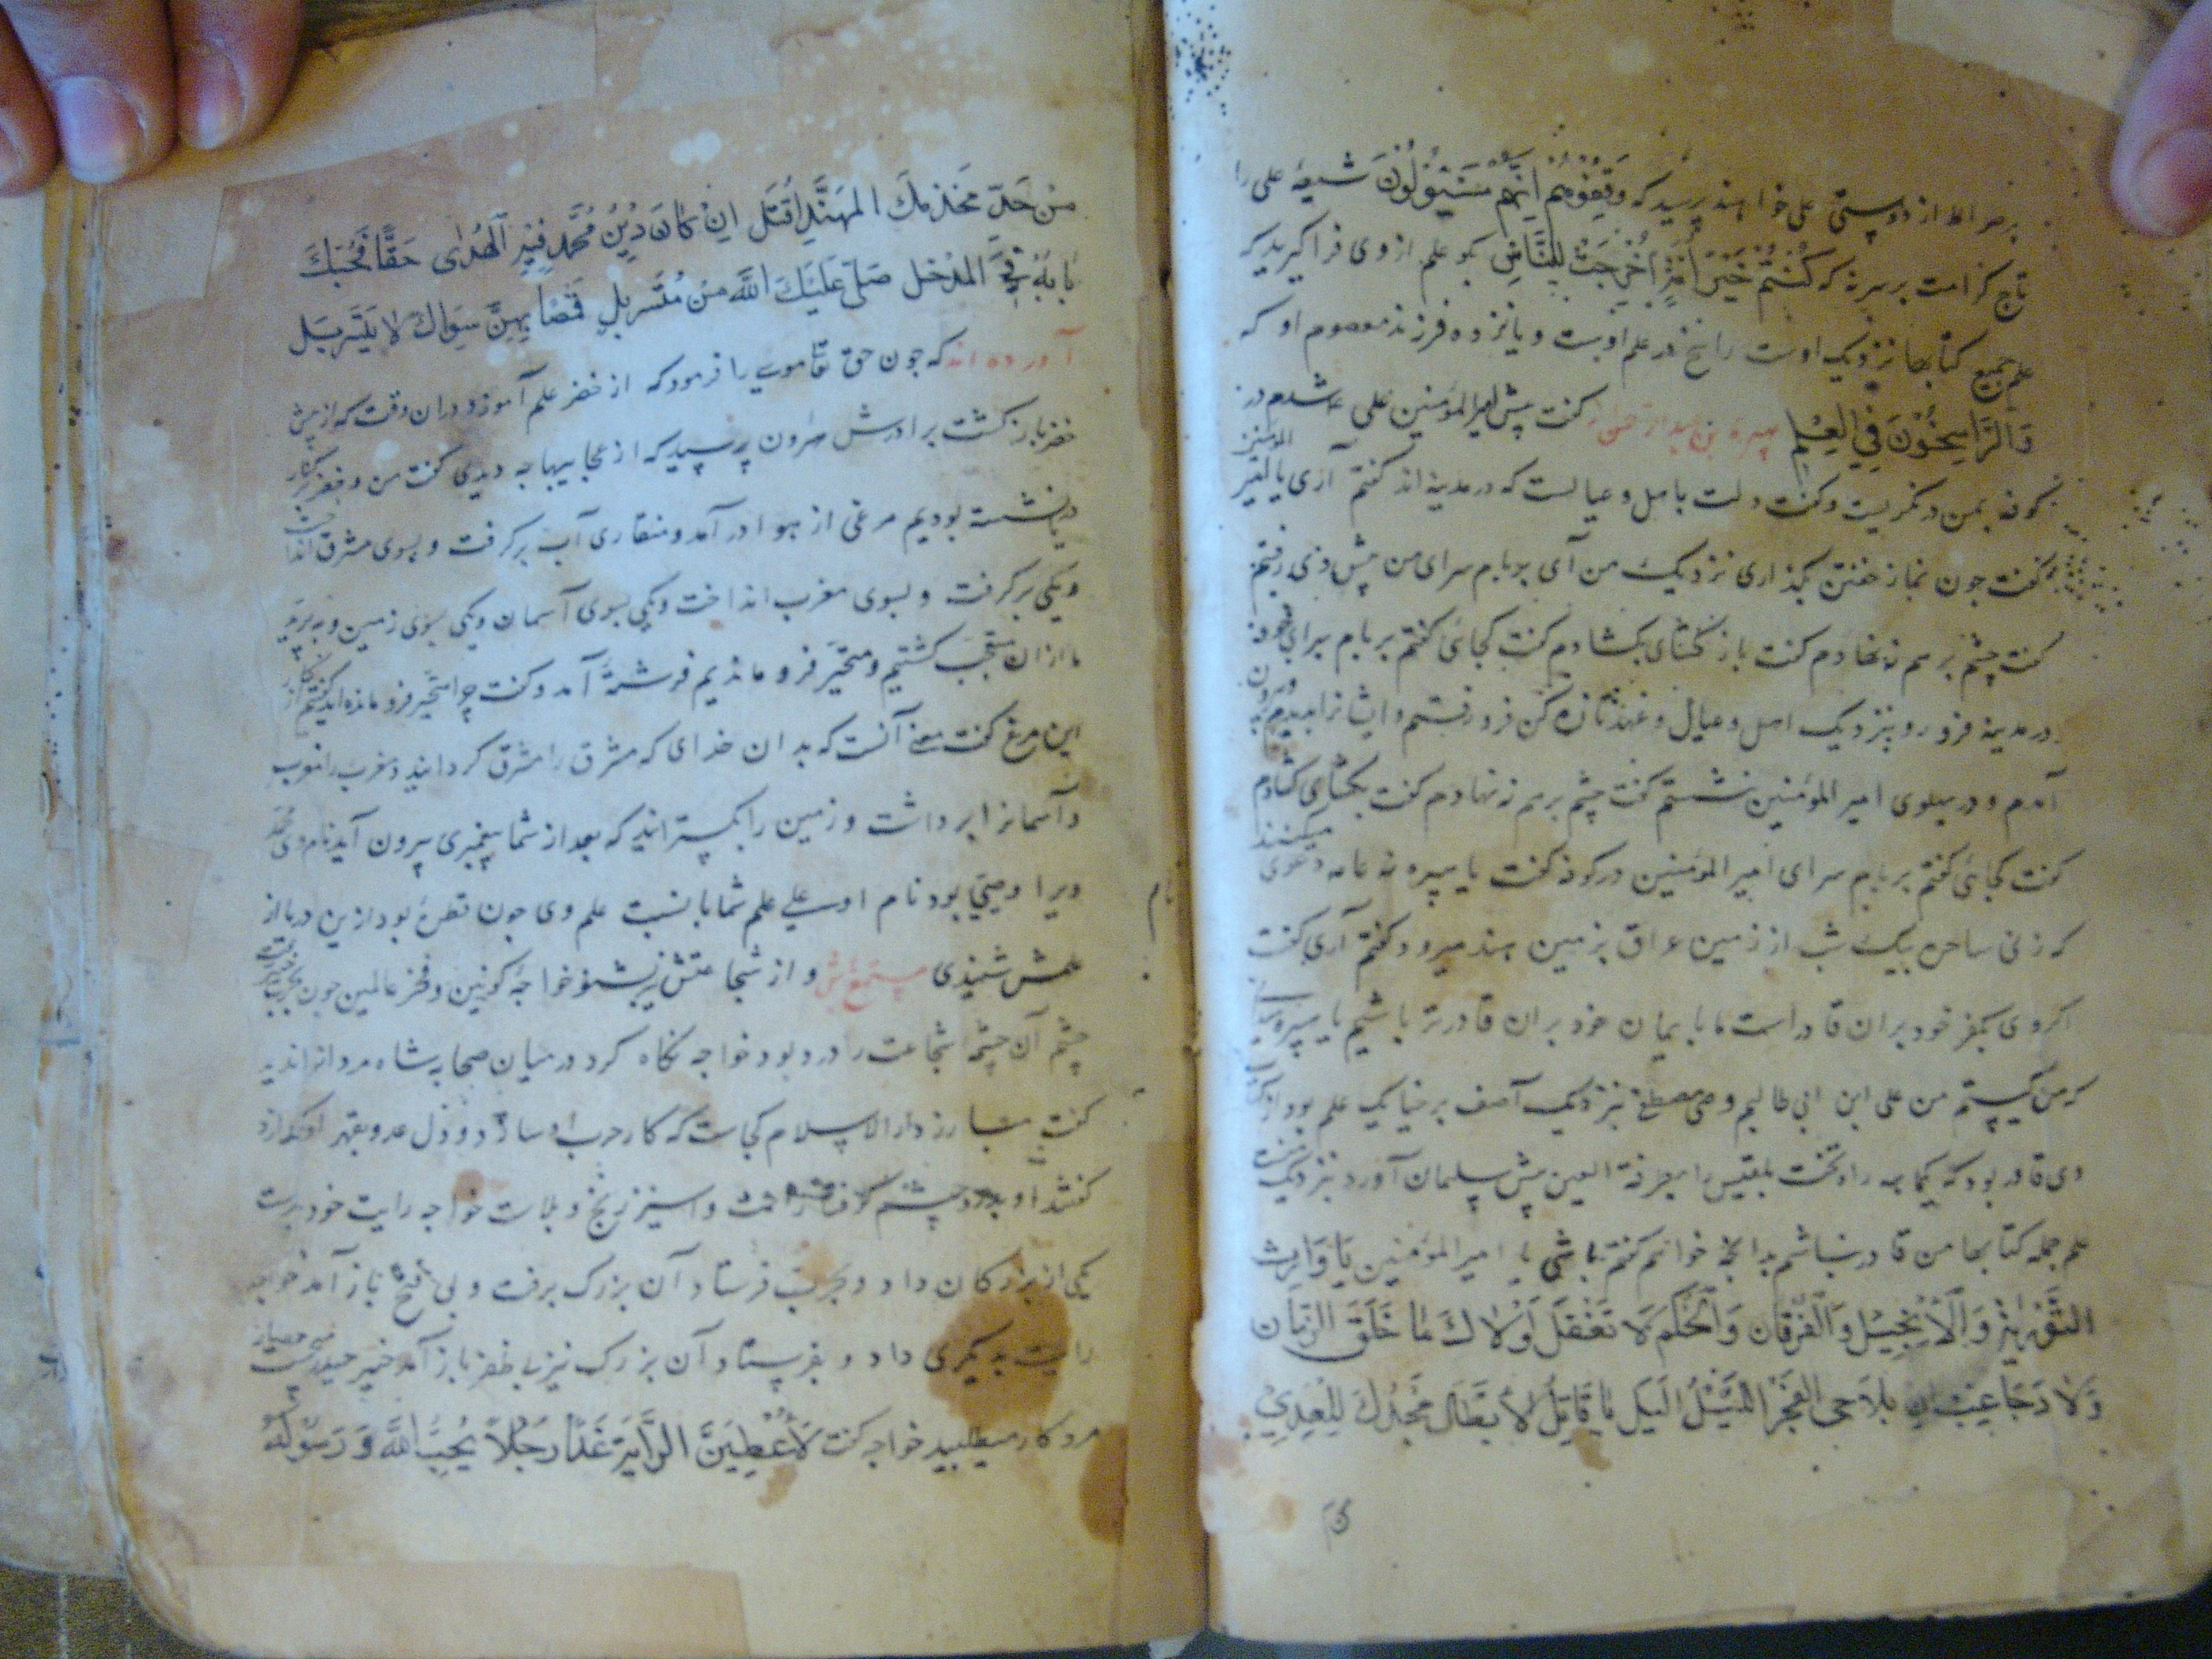 بر صراط از دوستی علی خواهند پرسید که وَقِفُوهُمْ اِنَّهُمْ مَسْئُولُونَ شیعهٔ علی را
تاج کرامت بر سر نه که كُنْتُمْ خَيْرَ اُمَّةٍ اُخْرِجَتْ لِلنَّاسِ علم از وی فرا گیرید که
علم جمیع کتابها نزدیک اوست راسخ در علم اوست و یازده فرزند معصوم او که
وَالرَّاسِخُونَ فِي الْعِلْمِ کفت پیش امیر المؤمنین علی شدم در
کوفه بمن در نکریست و کفت دلت باهل و عیالست که در مدینه اند کفتم آری یا امیر المؤمنین
کفت چون نماز خفتن بگذاری نزدیک من آی بر بام سرای من پیش وی رفتم
کفت چشم بر هم نه نهادم کفت باز کشای بکشادم کفت کجائی کفتم بر بام سرای خود
در مدینه فرو رو بنزدیک اهل و عیال و عهد تازه کن فرو رفتم و ایشانرا بدیدم و بیرون
آمدم و در پهلوی امیر المؤمنین نشستم کفت چشم بر هم نه نهادم کفت بکشای کشادم
کفت کجائی کفتم بر بام سرای امیر المؤمنین در کوفه کفت یا هبیره نه عامه دعوی میکنند
که زنی ساحره بیک شب از زمین عراق بزمین هند میرود کفتم آری کفت
اکر وی بکفر خود بران قادر است ما بایمان خود بران قادرتر باشیم یا هبیره
که من کیستم من علی ابن ابی طالبم وصی مصطفی نزدیک آصف برخیا یک علم بود از
وی قادر بود که یکماهه راه تخت بلقیس را بطرفة العین پیش سلیمان آورد نزدیک
علم جمله کتابها من قادر نباشم بدانچه خواهم کفتم باشی یا امیر المؤمنین یَا وَارِثَ
التَّوْرِيةِ وَالْاِنْجِيلِ وَالْفُرْقَانِ وَالْحِكَمِ لَوْلَاكَ مَا خَلَقَ الزَّمَانَ
وَلَا دَجَا الْفَجْرِ اللَّيْلُ
مِنْ حَدِّ الْمُهَنَّدِ اَقْتُلْ اِنْ كَانَ دِيْنُ مُحَمَّدٍ فِيْهِ الْهُدٰى حَقًّا فَحُبُّكَ
بَابُهُ فِي الْمَدْخَلِ صَلَّى عَلَيْكَ اللّٰهُ مِنْ مُتَسَرْبِلٍ قُمُصًا بِهِنَّ سِوَاكَ لَا يَتَسَرْبَلُ
آورده اند که چون حق تعا موسی را فرمود که از خضر علم آموز و دران وقت که از پیش
خضر باز کشت برادرش هارون پرسید که از عجایبها چه دیدی کفت من و خضر بر کنار
دریا نشسته بودیم مرغی از هوا در آمد و منقاری آب بر کرفت و بسوی مشرق انداخت
و یکی بر کرفت و بسوی مغرب انداخت و یکی بسوی آسمان و یکی بسوی زمین و بپرید
ما ازان متعجب کشتیم و متحیر فرو ماندیم فرشتهٔ آمد و کفت چرا متحیر فرو مانده اید کفتیم از کار
این مرغ کفت معنی آنست که بدان خدای که مشرق را مشرق کردانید و مغرب را مغرب
و آسمانرا برداشت و زمین را بکسترانید که بعد از شما پیغمبری بیرون آید نام وی محمد
ویرا وصیی بود نام او علی علم شما با نسبت علم وی چون قطرهٔ بود ازین دریا از
علمش شنیدی و از شجاعتش نیز بشنو خواجه کونین و فخر عالمین چون بحرب
چشم آن چشمهٔ شجاعت را درد بود خواجه نکاه کرد در میان صحابه شاه مردانرا ندید
کفت مبارز دار الاسلام کجاست که کار حرب او سازد و دل عدو بقهر او کدازد
کفتند او بدرد چشم کرفتار است و اسیر رنج و بلاست خواجه رایت خود بدست
یکی از بزرکان داد و بحرب فرستاد آن بزرک برفت و بی فتح باز آمد خواجه
رایت بدیکری داد و بفرستاد آن بزرک نیز بی ظفر باز آمد
مرد کار میطلبید خواجه کفت لَاُعْطِيَنَّ الرَّايَةَ غَدًا رَجُلًا يُحِبُّ اللّٰهَ وَ رَسُوْلَهُ